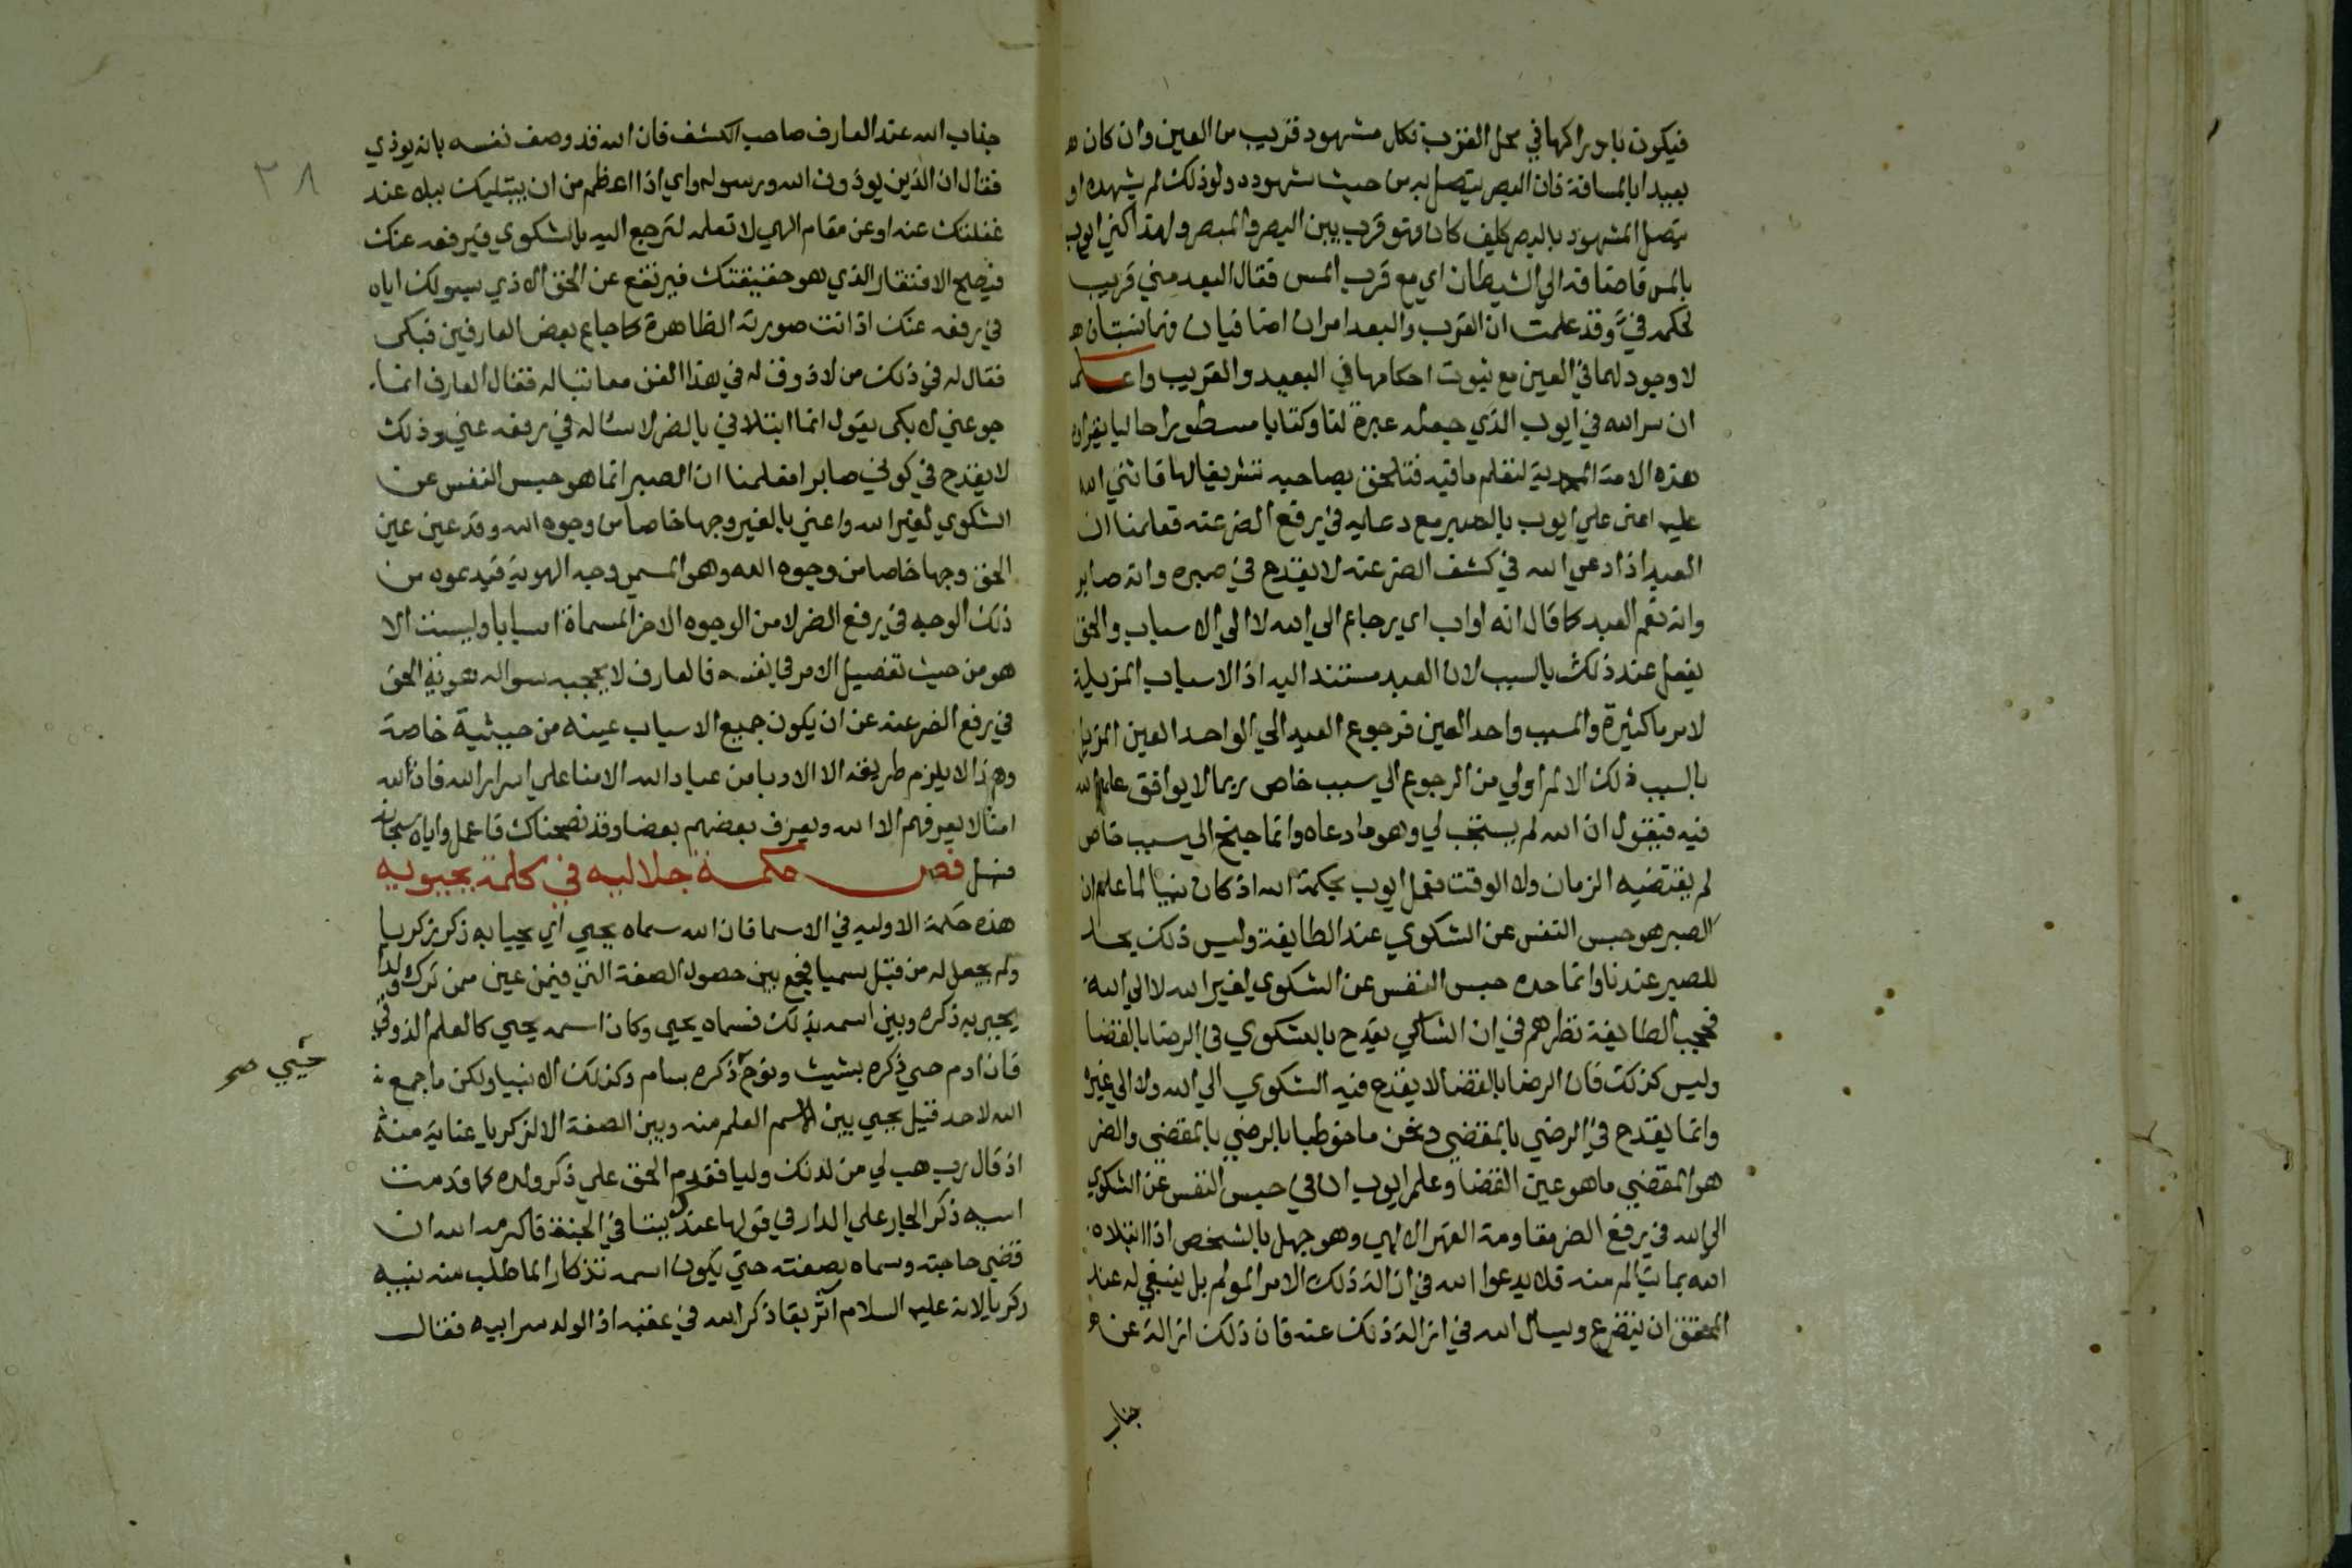 فيكون بادراكها في محل القرب فكل مشهود قريب من العين وان كان ه
بعيدا بالمسافة فان البصر يتصل به من حيث شهوده ولولا ذلك لم يشهده او
يتصل المشهود بالبصر كيف كان فهو قرب بين البصر والمبصر ولهذا كني ايوب
بالمس فاضافه الي الشيطان اي مع قرب المس فقال البعيد مني قريب
لحكمه في وقد علمت ان القرب والبعد امران اضافيان فهما نسبتان ه
لا وجود لهما في العين مع ثبوت احكامها في البعيد والقريب واعلم
ان سر الله في ايوب الذي جعله عبرة لنا وكتابا مسطورا حاليا يقراه
هذه الامة المحمدية لتعلم ما فيه فتلحق بصاحبه تشريفا لها فاثني الله
عليه اعني علي ايوب بالصبر مع دعايه في رفع الضر عنه فعلمنا ان
العبد اذا دعي الله في كشف الضر عنه لا يقدح في صبره وانه صابر
وانه نعم العبد كما قال انه اواب اي رجاع الي الله لا الي الاسباب والحق
يفعل عند ذلك بالسبب لان العبد مستند اليه اذ الاسباب المزيلة
لامر ما كثيرة والمسبب واحد العين فرجوع العبد الي الواحد العين المزيل
بالسبب ذلك الالم اولي من الرجوع الي سبب خاص ربما لا يوافق علم الله
فيه فيقول ان الله لم يستجب لي وهو ما دعاه وانما جنح الي سبب خاص
لم يقتضيه الزمان ولا الوقت فعمل ايوب بحكمة الله اذ كان نبيا لما علم ان
الصبر هو حبس النفس عن الشكوي عند الطايفة وليس ذلك بحد
للصبر عندنا وانما حده حبس النفس عن الشكوي لغير الله لا الي الله
فحجب الطايفة نظرهم في ان الشاكي يقدح بالشكوي في الرضا بالقضا
وليس كذلك فان الرضا بالقضا لا يقدح فيه الشكوي الي الله ولا الي غيره
وانما يقدح في الرضي بالمقضي ونحن ما خوطبنا بالرضي بالمقضي والضر
هو المقضي ما هو عين القضا وعلم ايوب ان في حبس النفس عن الشكوي
الي الله في رفع الضر مقاومة القهر الالهي وهو جهل بالشخص اذا ابتلاه
الله بما يتالم منه فلا يدعوا الله في ازالة ذلك الامر المولم بل ينبغي له عند
المحقق ان يتضرع ويسال الله في ازالة ذلك عنه فان ذلك ازالة عن ه
جناب
جناب الله عند العارف صاحب الكشف فان الله قد وصف نفسه بانه يوذي
فقال ان الذين يوذون الله ورسوله واي اذا اعظم من ان يبتليك ببلا عند
غفلتك عنه او عن مقام الهي لا تعلمه لترجع اليه بالشكوي فيرفعه عنك
فيصح الافتقار الذي هو حقيقتك فيرتفع عن الحق الاذي بسولك اياه
في رفعه عنك اذ انت صورته الظاهرة كما جاع بعض العارفين فبكي
فقال له في ذلك من لا ذوق له في هذا الفن معاتبا له فقال العارف انما
جوعني لابكي يقول انما ابتلاني بالضر لاساله في رفعه عني وذلك
لا يقدح في كوني صابرا فعلمنا ان الصبر انما هو حبس النفس عن
الشكوي لغير الله واعني بالغير وجها خاصا من وجوه الله وقد عين عين
الحق وجها خاصا من وجوه الله وهو المسمي وجه الهوية فيدعوه من
ذلك الوجه في رفع الضر لا من الوجوه الاخر المسماة اسبابا وليست الا
هو من حيث تفصيل الامر في نفسه فالعارف لا يحجبه سواله هوية الحق
في رفع الضر عنه عن ان يكون جميع الاسباب عينه من حيثية خاصة
وهذا لا يلزم طريقه الا الادبا من عباد الله الامنا علي اسرار الله فان لله
امنا لا يعرفهم الا الله ويعرف بعضهم بعضا وقد نصحناك فاعمل واياه سبحانه
فسل فص حكمة جلاليه في كلمة يحيويه
هذه حكمة الاوليه في الاسما فان الله سماه يحيي اي يحيا به ذكر زكريا
ولم يجعل له من قبل سميا فجمع بين حصول الصفة التي فيمن عين ممن ترك ولدا
يحيي به ذكره وبين اسمه بذلك فسماه يحيي وكان اسمه يحيي كالعلم الذوقي
فان ادم حيي ذكره بشيث ونوح ذكره بسام وكذلك الانبيا ولكن ما جمع
حيي صح
الله لاحد قبل يحيي بين الاسم العلم منه وبين الصفة الا لزكريا عناية منه
اذ قال رب هب لي من لدنك وليا فقدم الحق علي ذكر ولده كما قدمت
اسيه ذكر الجار علي الدار في قولها عندك بيتا في الجنة فاكرمه الله ان
قضي حاجته وسماه بصفته حتي يكون اسمه تذكارا لما طلب منه نبيه
زكريا لانه عليه السلام اثر بقا ذكر الله في عقبه اذ الولد سر ابيه فقال
٢٨